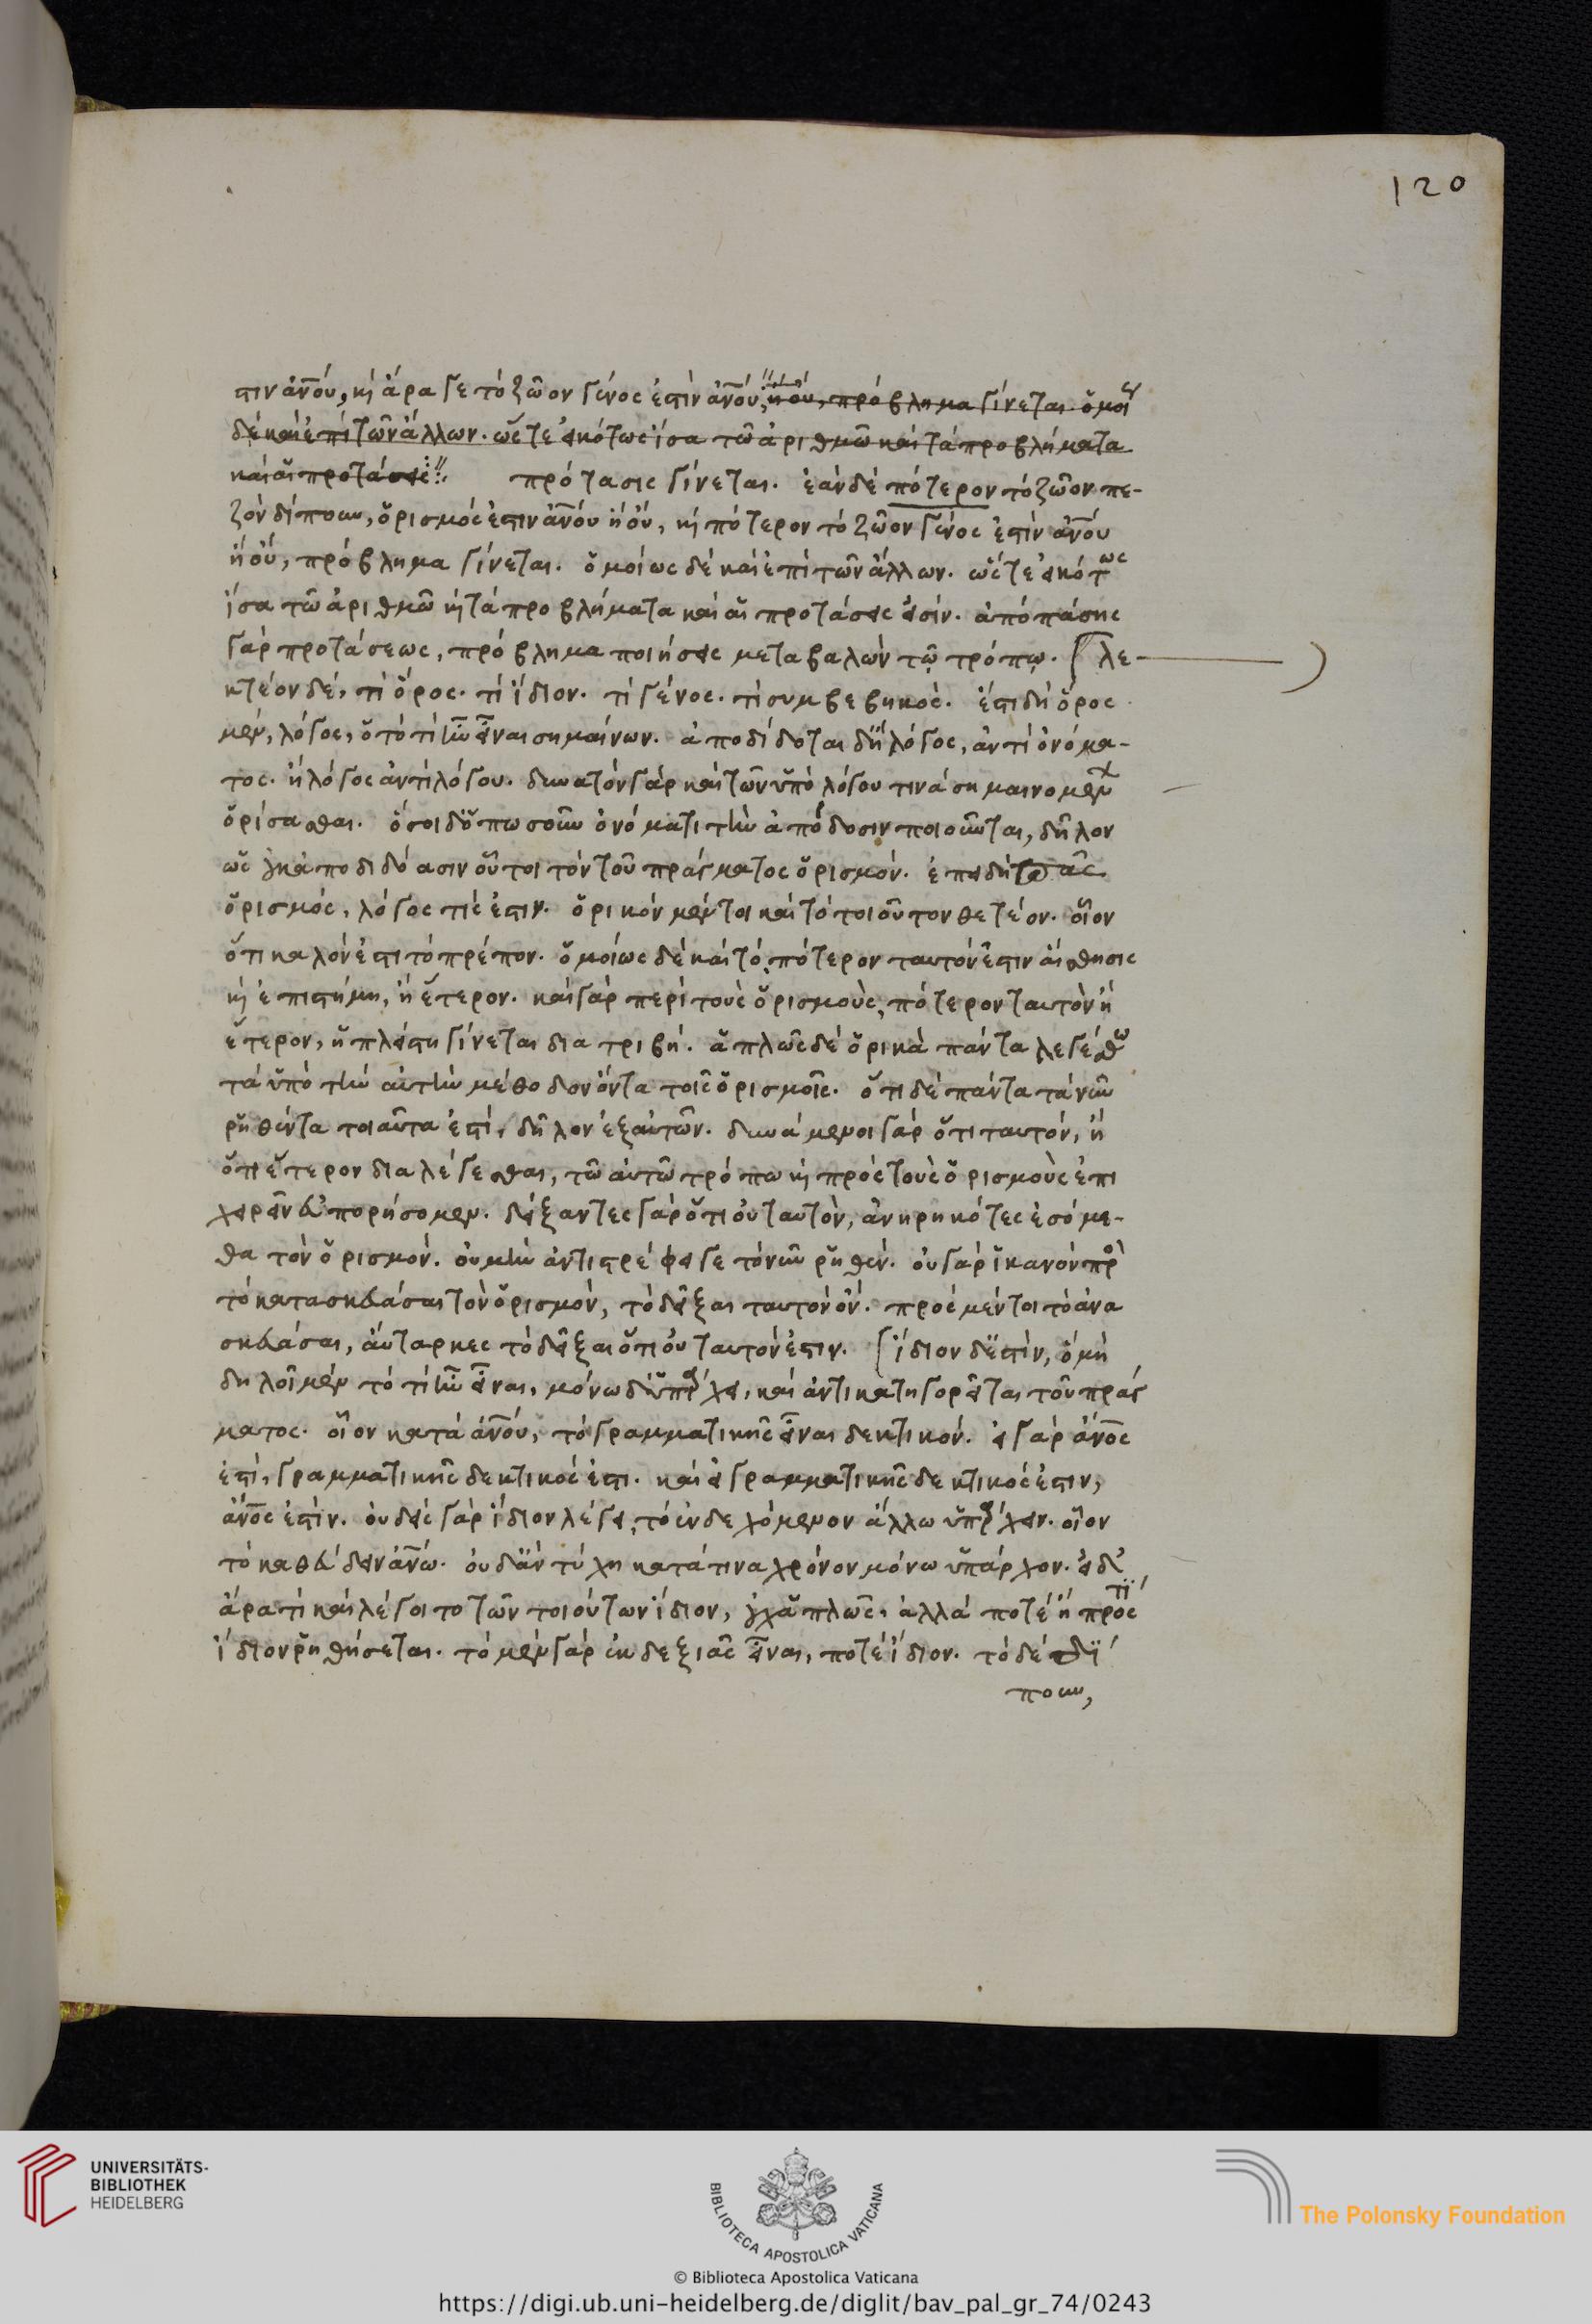 120
στιν ἀνου, κ ἄρα γε τὸ ζῶον γένος ἐστὶν ἀνου; ἢ οὔ, πρόβλημα γίνεται. ὁμοί
δὲ καὶ ἐπὶ τῶν ἄλλων. ὥστε εἰκότως ἴσα τῶ ἀριθμῶ καὶ τὰ προβλήματα
καὶ αἱ προτάσεις πρότασις γίνεται. ἐὰν δὲ πότερον τὸ ζῶον πε-
ζὸν δίπουν, ὁρισμός ἐστιν ἀνου ἢ οὔ, κ πότερον τὸ ζῶον γένος ἐστὶν ἀνου
ἢ οὔ, πρόβλημα γίνεται. ὁμοίως δὲ καὶ ἐπὶ τῶν ἄλλων. ὥστε εἰκότως
ἴσα τῶ ἀριθμῶ κ τὰ προβλήματα καὶ αἱ προτάσεις εἰσίν. ἀπὸ πάσης
γὰρ προτάσεως, πρόβλημα ποιήσεις μεταβαλὼν τῷ τρόπῳ. λε-
κτέον δὲ, τί ὅρος. τί ἴδιον. τί γένος. τί συμβεβηκός. ἔστι δὴ ὅρος
μὲν, λόγος, ὁ τὸ τί ἦν εἶναι σημαίνων. ἀποδίδοται δὴ λόγος, ἀντὶ ὀνόμα-
τος. ἢ λόγος ἀντὶ λόγου. δυνατὸν γὰρ καὶ τῶν ὑπὸ λόγου τινὰ σημαινομέν
ὁρίσασθαι. ὅσοι δ' ὁπωσοῦν ὀνόματι τὴν ἀπόδοσιν ποιοῦνται, δῆλον
ὡς οὐκ ἀποδιδόασιν οὗτοι τὸν τοῦ πράγματος ὁρισμόν. ἐπειδὴ πᾶς
ὁρισμός, λόγος τίς ἐστιν. ὁρικὸν μέντοι καὶ τὸ τοιοῦτον θετέον. οἷον
ὅτι καλόν ἐστι τὸ πρέπον. ὁμοίως δὲ καὶ τὸ, πότερον ταυτόν ἐστιν αἴσθησις
κ ἐπιστήμη, ἢ ἕτερον. καὶ γὰρ περὶ τοὺς ὁρισμοὺς, πότερον ταυτὸν ἢ
ἕτερον, ἡ πλείστη γίνεται διατριβή. ἁπλῶς δὲ ὁρικὰ πάντα λεγέσθω
τὰ ὑπὸ τὴν αὐτὴν μέθοδον ὄντα τοῖς ὁρισμοῖς. ὅτι δὲ πάντα τὰ νῦν
ῥηθέντα τοιαῦτα ἐστί, δῆλον ἐξ αὐτῶν. δυνάμενοι γὰρ ὅτι ταυτόν, ἢ
ὅτι ἕτερον διαλέγεσθαι, τῶ αὐτῶ τρόπω κ πρὸς τοὺς ὁρισμοὺς ἐπι
χειρεῖν εὐπορήσομεν. δείξαντες γὰρ ὅτι οὐ ταυτὸν, ἀνηρηκότες ἐσόμε-
θα τὸν ὁρισμόν. οὐ μὴν ἀντιστρέφει γε τὸ νῦν ῥηθέν. οὐ γὰρ ἱκανὸν πρὸ
τὸ κατασκευάσαι τὸν ὁρισμὸν, τὸ δεῖξαι ταυτὸν ὄν. πρὸς μέντοι τὸ ἀνα
σκευάσαι, αὔταρκες τὸ δεῖξαι ὅτι οὐ ταυτόν ἐστιν. ἴδιον δ' ἐστὶν, ὃ μὴ
δηλοῖ μὲν τὸ τί ἦν εἶναι, μόνω δ' ὑπάρχει, καὶ ἀντικατηγορεῖται τοῦ πράγ
ματος. οἷον κατὰ ἀνου, τὸ γραμματικῆς εἶναι δεκτικόν. εἰ γὰρ ἀνος
ἐστί, γραμματικῆς δεκτικός ἐστι. καὶ εἰ γραμματικῆς δεκτικός ἐστιν,
ἀνος ἐστίν. οὐδεὶς γὰρ ἴδιον λέγει, τὸ ἐνδεχόμενον ἄλλω ὑπάρχειν. οἷον
τὸ καθεύδειν ἀνω. οὐδ' ἂν τύχη κατά τινα χρόνον μόνω ὑπάρχον. εἰ δ'
ἄρα τὶ καὶ λέγοιτο τῶν τοιούτων ἴδιον, οὐχ ἁπλῶς, ἀλλὰ ποτὲ ἢ πρὸς τί
ἴδιον ῥηθήσεται. τὸ μὲν γὰρ ἐκ δεξιᾶς εἶναι, ποτὲ ἴδιον. τὸ δὲ δί
πουν,
UNIVERSITÄTS-
BIBLIOTHEK
HEIDELBERG
BIBLIOTECA APOSTOLICA VATICANA
The Polonsky Foundation
© Biblioteca Apostolica Vaticana
https://digi.ub.uni-heidelberg.de/diglit/bav_pal_gr_74/0243